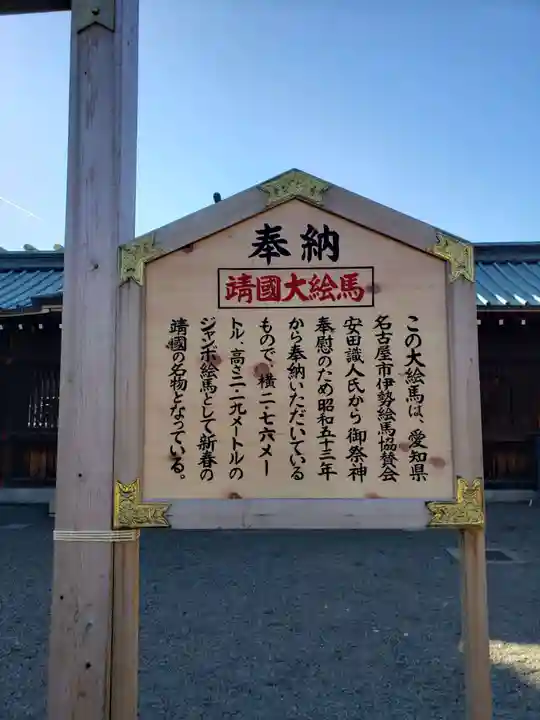 奉納
靖國大絵馬
この大絵馬は、愛知県
名古屋市伊勢絵馬協賛会
安田識人氏から御祭神
奉慰のため昭和五十三年
から奉納いただいている
もので、横二・七六メー
トル、高さ二・二九メートルの
ジャンボ絵馬として新春の
靖國の名物となっている。